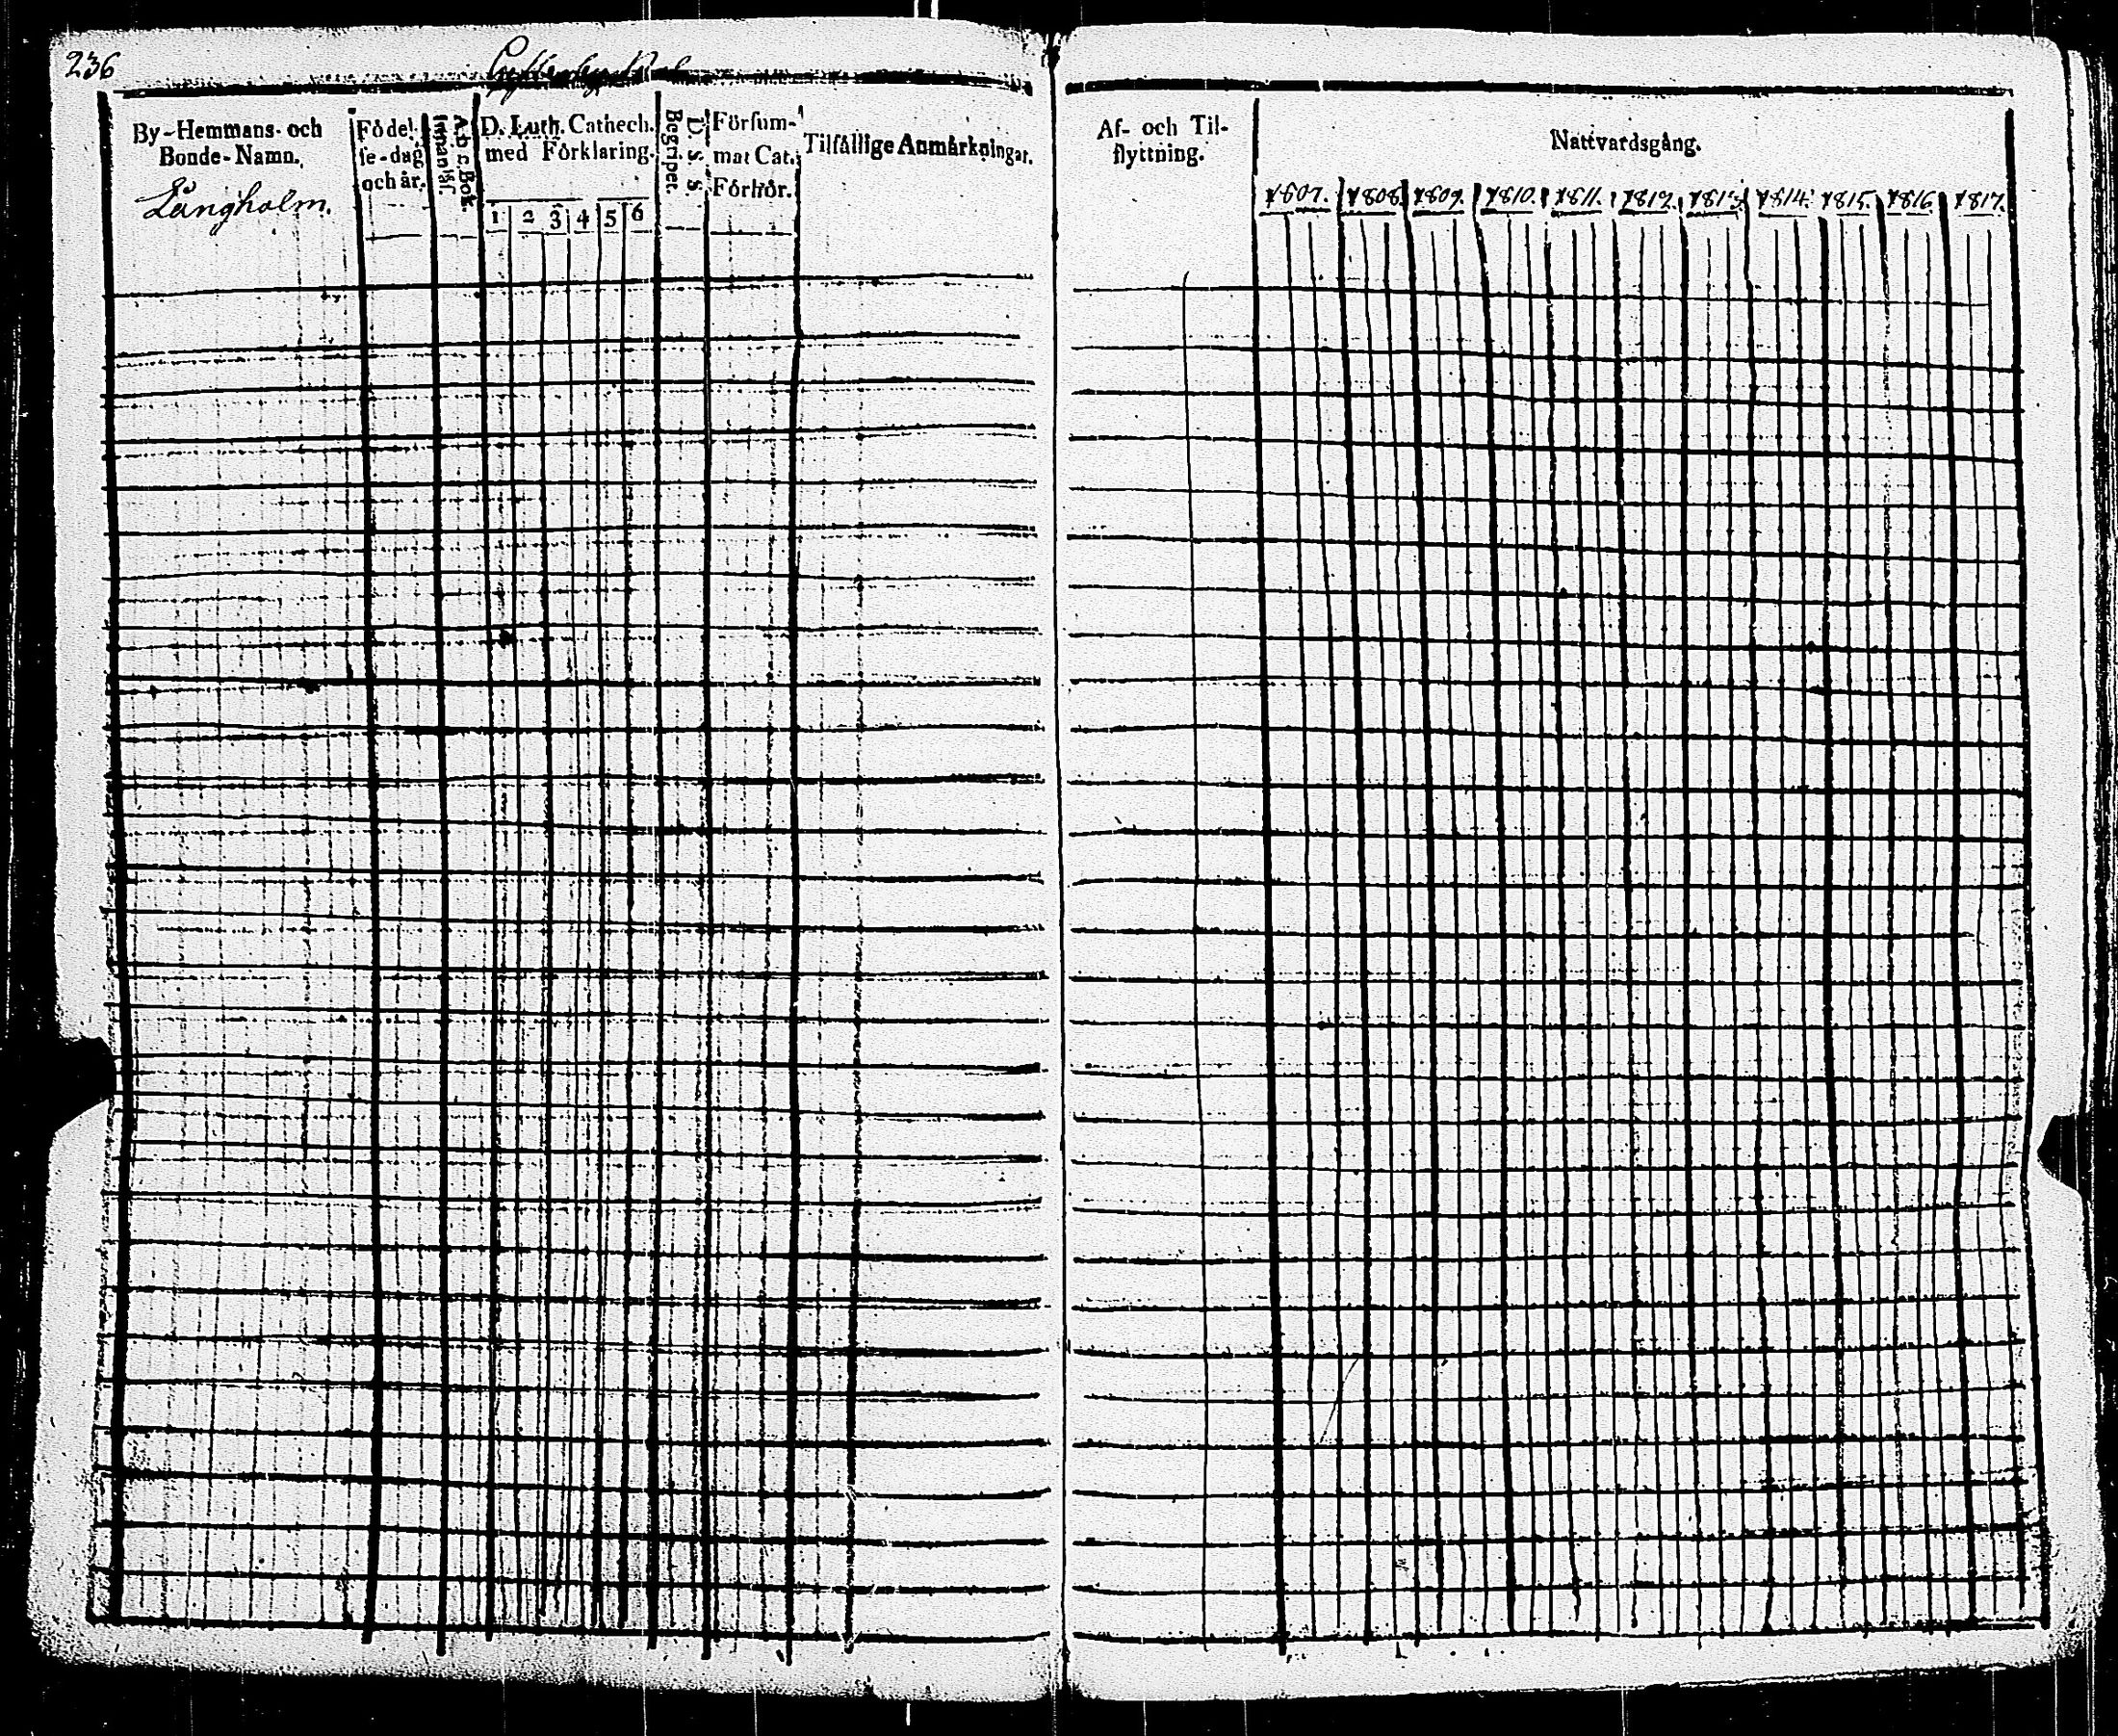 236
By-Hemmans- och
Bonde-Namn.
Långholm.
Födel-
se-dag
och år.
A. b. c. Bok.
Innanläs.
D. Luth. Cathech.
med Förklaring.
1 2 3 4 5 6
Begripet.
D:o s. s.
Försum-
mat Cat.
Förhör.
Tilfällige Anmärkningar.
Af- och Til-
flyttning.
Nattvardsgång.
1807. 1808. 1809. 1810. 1811. 1812. 1813. 1814. 1815. 1816. 1817.